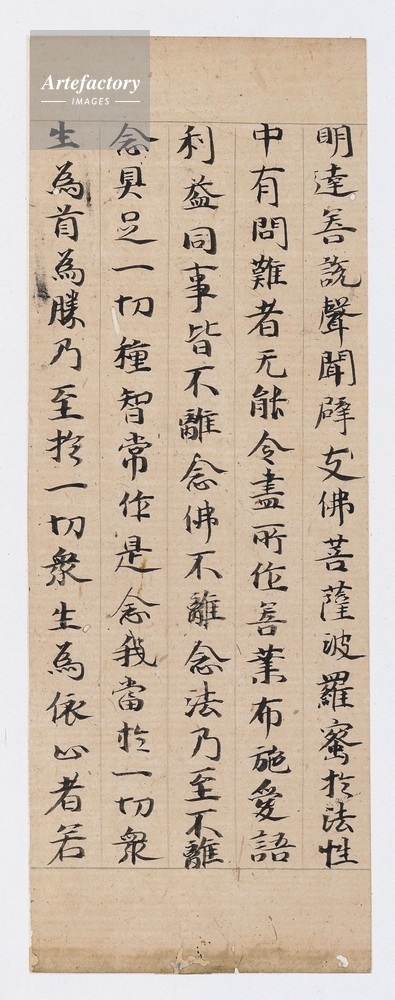 Artefactory
IMAGES
明達善説聲聞辟支佛菩薩波羅蜜於法性
中有問難者无能令盡所作善業布施愛語
利益同事皆不離念佛不離念法乃至不離
念具足一切種智常作是念我當於一切衆
生為首為勝乃至於一切衆生為依止者若